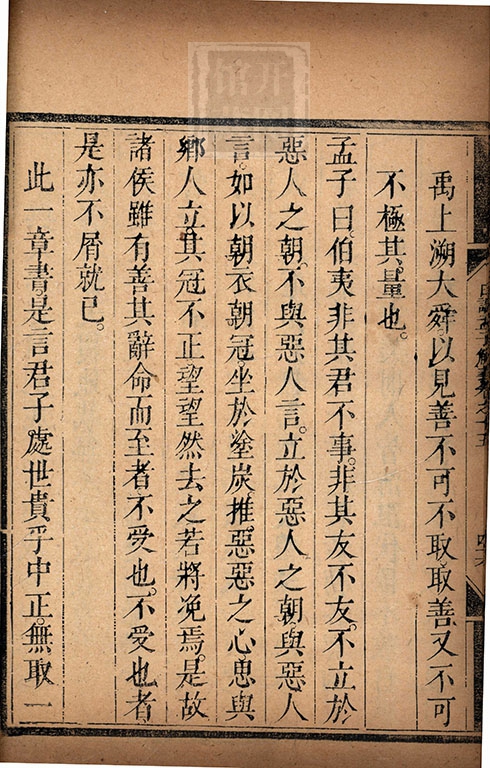 禹上溯大舜以見善不可不取取善又不可
不極其量也。
孟子曰。伯夷非其君不事。非其友不友。不立於
惡人之朝。不與惡人言。立於惡人之朝與惡人
言。如以朝衣朝冠。坐於塗炭。推惡惡之心。思與
鄉人立。其冠不正望望然去之若將凂焉。是故
諸侯雖有善其辭命而至者不受也。不受也者
是亦不屑就已。
此一章書是言君子處世貴乎中正。無取一